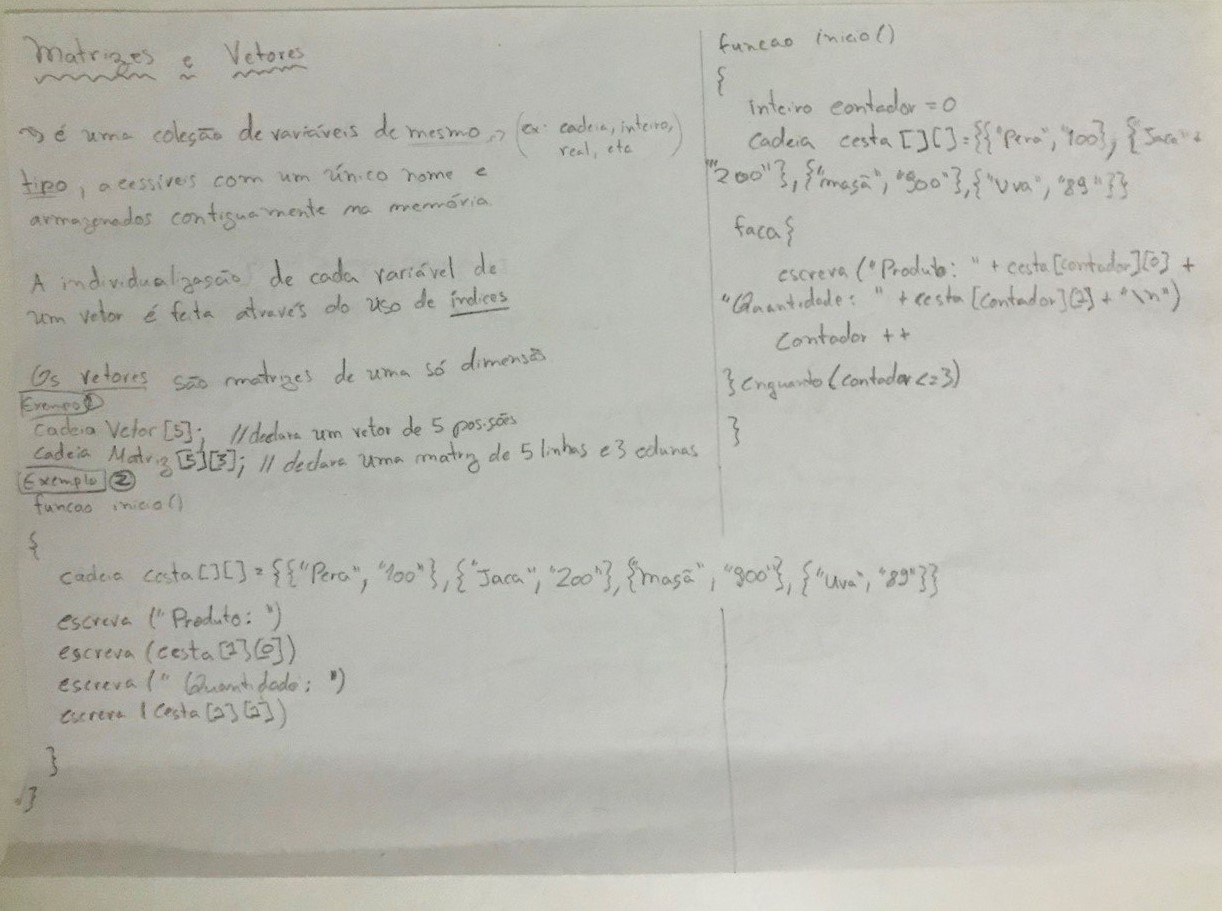 Matrizes e Vetores
→ é uma coleção de variáveis de mesmo → (ex: cadeia, inteiro,
real, etc)
tipo, acessíveis com um único nome e
armazenados contiguamente na memória
A individualização de cada variável de
um vetor é feita através do uso de índices
Os vetores são matrizes de uma só dimensão
Exemplo 1
Cadeia Vetor[5]; // declara um vetor de 5 posições
Cadeia Matriz[5][3]; // declara uma matriz de 5 linhas e 3 colunas
Exemplo 2
funcao inicio()
{
cadeia cesta[][] = {{"Pera", "100"}, {"Jaca", "200"}, {"maçã", "900"}, {"Uva", "89"}}
escreva ("Produto: ")
escreva (cesta[1][0])
escreva (" Quantidade: ")
escreva (cesta[1][1])
}
}
funcao inicio()
{
inteiro contador = 0
cadeia cesta [][] = {{"Pera", "100}, {"Jaca" +
"200"}, {"maçã", "900"}, {"Uva", "89"}}
faca{
escreva ("Produto: " + cesta[contador][0] +
"Quantidade: " + cesta [contador][1] + "\n")
Contador ++
} enquanto (contador <= 3)
}